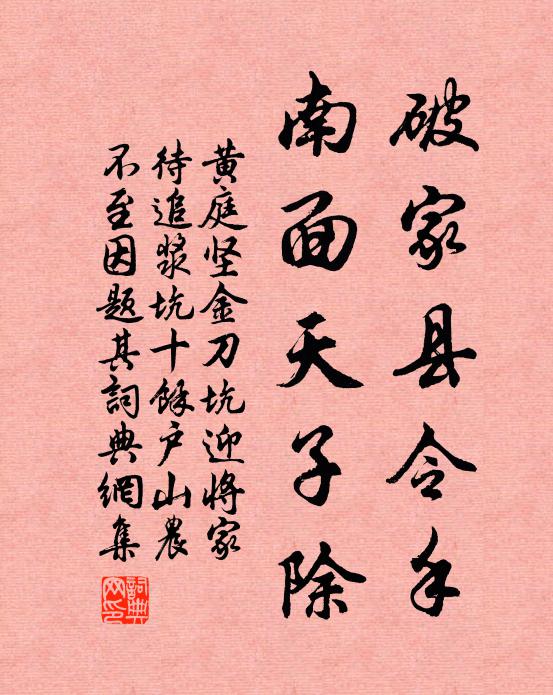 破家县令手
南面天子除
黄庭坚金刀坑迎将家
待追浆坑十餘户山農
不至因题其詞典網集
詞典
网印